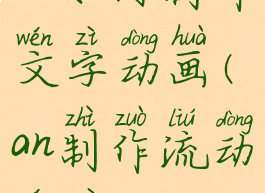 wén zì dòng huà
文字动画(
zhì zuò liú dòng
an制作流动